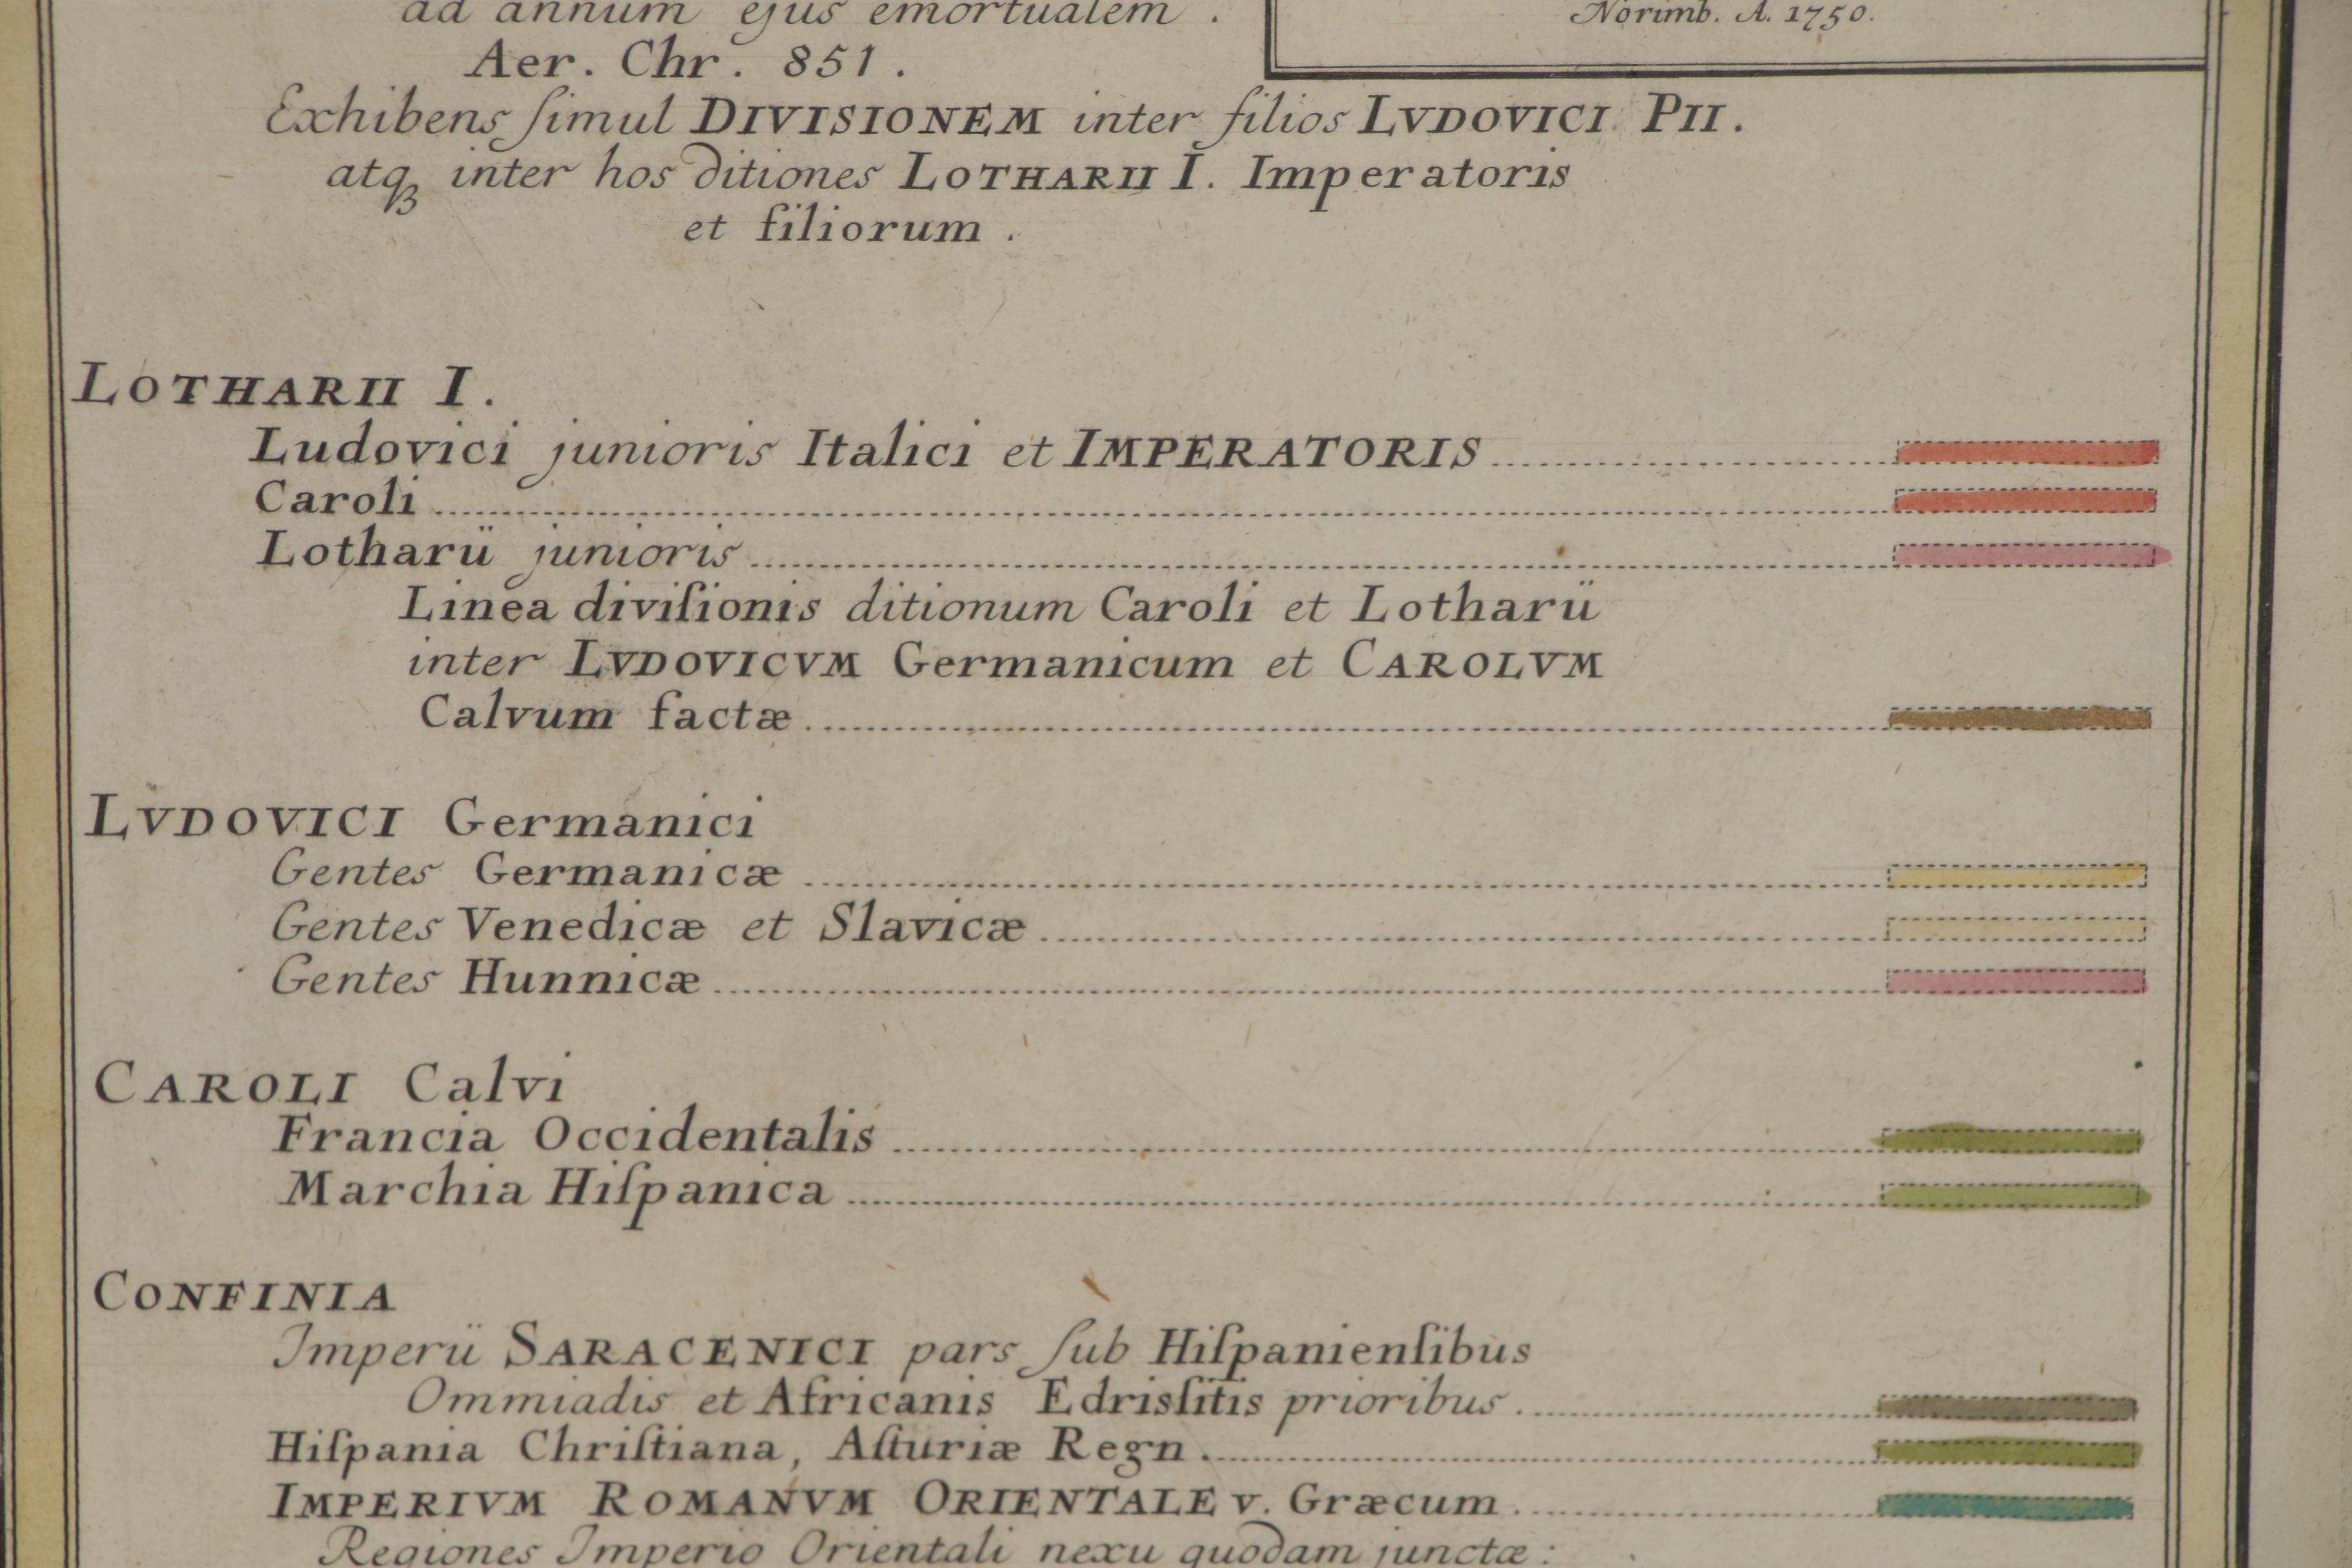 ad annum ejus emortualem .
Norimb. A. 1750.
Aer. Chr. 851.
Exhibens ſimul DIVISIONEM inter filios LVDOVICI PII.
atqꝫ inter hos ditiones LOTHARII I. Imperatoris
et filiorum .
LOTHARII I.
Ludovici junioris Italici et IMPERATORIS
Caroli
Lotharii junioris
Linea diviſionis ditionum Caroli et Lotharii
inter LVDOVICVM Germanicum et CAROLVM
Calvum factæ
LVDOVICI Germanici
Gentes Germanicæ
Gentes Venedicæ et Slavicæ
Gentes Hunnicæ
CAROLI Calvi
Francia Occidentalis
Marchia Hiſpanica
CONFINIA
Imperii SARACENICI pars ſub Hiſpanienſibus
Ommiadis et Africanis Edrisſitis prioribus
Hiſpania Chriſtiana, Aſturiæ Regn.
IMPERIVM ROMANVM ORIENTALE v. Græcum
Regiones Imperio Orientali nexu quodam junctæ: